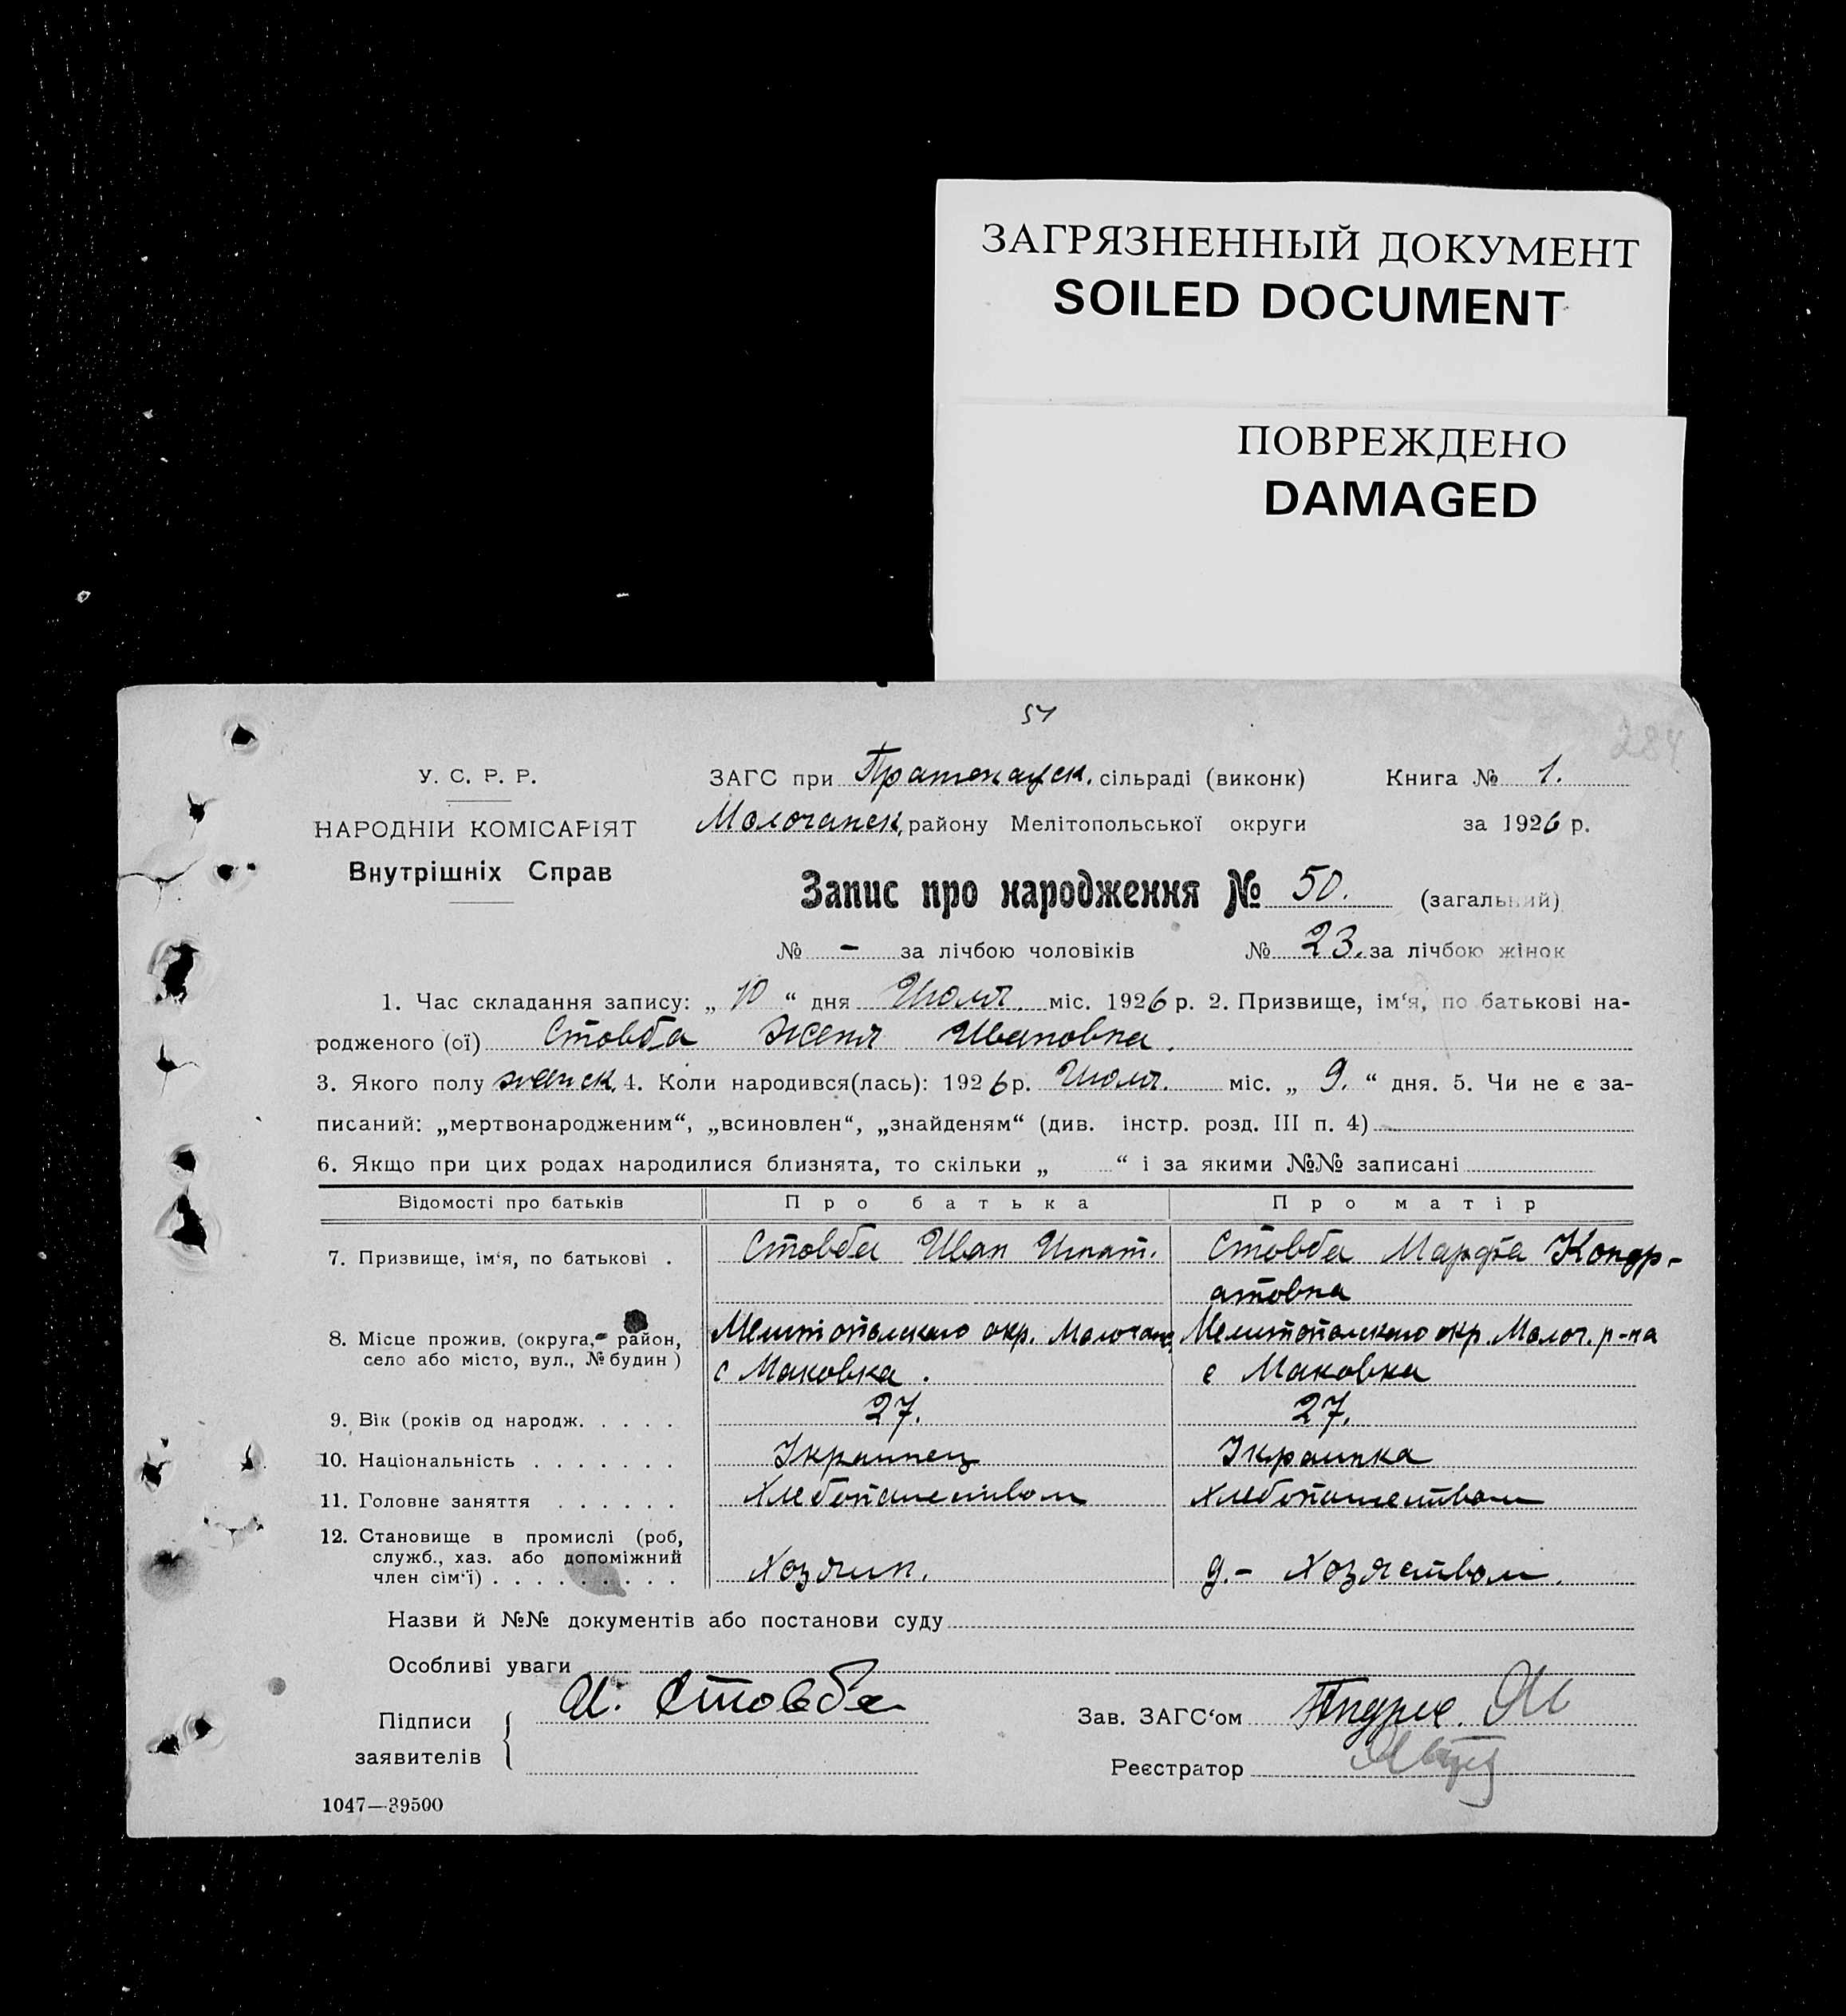 ЗАГРЯЗНЕННЫЙ ДОКУМЕНТ
SOILED DOCUMENT
ПОВРЕЖДЕНО
DAMAGED
51
284
У. С. Р. Р.
НАРОДНІЙ КОМІСАРІЯТ
Внутрішніх Справ
ЗАГС при сільраді (виконк)
Книга № 1.
Молочанск, району Мелітопольської округи
за 1926 р.
Запис про народження № 50. (загальний)
№ - за лічбою чоловіків № 23. за лічбою жінок
1. Час складання запису: „ 10 “ дня Июля. міс. 1926 р. 2. Призвище, ім‘я, по батькові на-
родженого (ої) Стовба Женя Ивановна.
3. Якого полу женск. 4. Коли народився(лась): 1926 р. Июля. міс. „ 9. “ дня. 5. Чи не є за-
писаний: „мертвонародженим“, „всиновлен“, „знайденям“ (див. інстр. розд. III п. 4)
6. Якщо при цих родах народилися близнята, то скільки „ “ і за якими №№ записані
Відомості про батьків
Про батька
Про матір
7. Призвище, ім‘я, по батькові .
Стовба Иван Игнат.
Стовба Марфа Кондр-
атовна
8. Місце прожив. (округа, район,
село або місто, вул., № будин )
Мелитопольского окр. Молочанс,
с Маковка.
Мелитопольского окр. Молоч. р-на
с Маковка
9. Вік (років од народж. . . . .
27.
27.
10. Національність . . . . . . .
Украинец
Украинка
11. Головне заняття . . . . . .
Хлебопашеством
Хлебопашеством
12. Становище в промислі (роб,
служб., хаз. або допоміжний
член сім‘ї) . . . . . . . . .
Хозяин.
д.- Хозяством.
Назви й №№ документів або постанови суду
Особливі уваги
Підписи
заявителів
И. Стовба
Зав. ЗАГС‘ом
Реєстратор
1047—39500